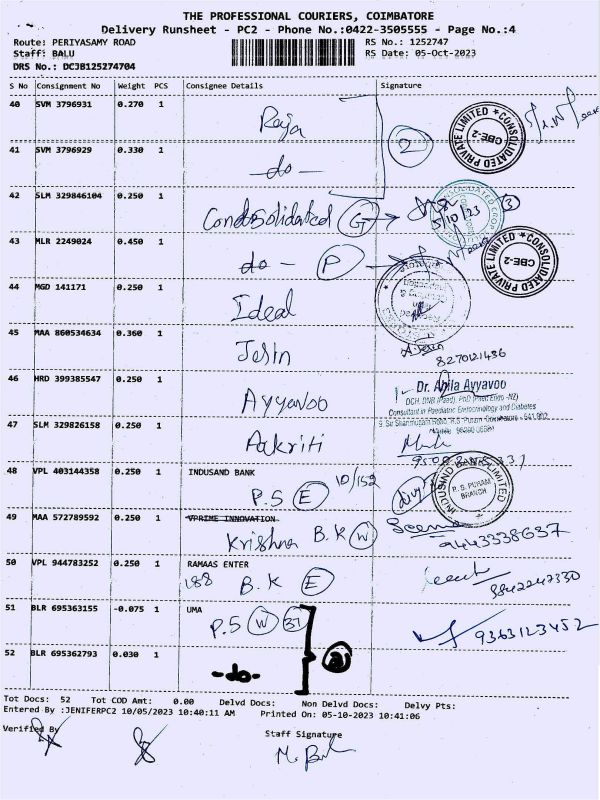 THE PROFESSIONAL COURIERS, COIMBATORE
Delivery Runsheet - PC2 - Phone No.:0422-3505555 - Page No.:4
Route: PERIYASAMY ROAD RS No.: 1252747
Staff: BALU RS Date: 05-Oct-2023
DRS No.: DCJB125274704
S No Consignment No Weight PCS Consignee Details Signature
40 SVM 3796931 0.270 1 Raja
CONSOLIDATED PRIVATE LIMITED * CBE-2
41 SVM 3796929 0.330 1 -do- 2
42 SLM 329846104 0.250 1 Condosolidated G 5/10/23 3
43 MLR 2249024 0.450 1 do - P
CONSOLIDATED PRIVATE LIMITED * CBE-2
44 MGD 141171 0.250 1 Ideal
45 MAA 860534634 0.360 1 Jesin
8270121436
46 HRD 399385547 0.250 1 Ayyavoo
Dr. Ahila Ayyavoo
Consultant in Paediatric Endocrinology and Diabetes
47 SLM 329826158 0.250 1 Aakriti
48 VPL 403144358 0.250 1 INDUSAND BANK
P.S E 10/152
INDUSIND BANK LIMITED R. S. PURAM BRANCH
49 MAA 572789592 0.250 1 VPRIME INNOVATION
Krishna B.K W Seema
9443338637
50 VPL 944783252 0.250 1 RAMAAS ENTER
188 B.K E
9842247330
51 BLR 695363155 -0.075 1 UMA
P.S W 31 9363123452
52 BLR 695362793 0.030 1
-do- 2
Tot Docs: 52 Tot COD Amt: 0.00 Delvd Docs: Non Delvd Docs: Delvy Pts:
Entered By :JENIFERPC2 10/05/2023 10:40:11 AM Printed On: 05-10-2023 10:41:06
Verified By Staff Signature